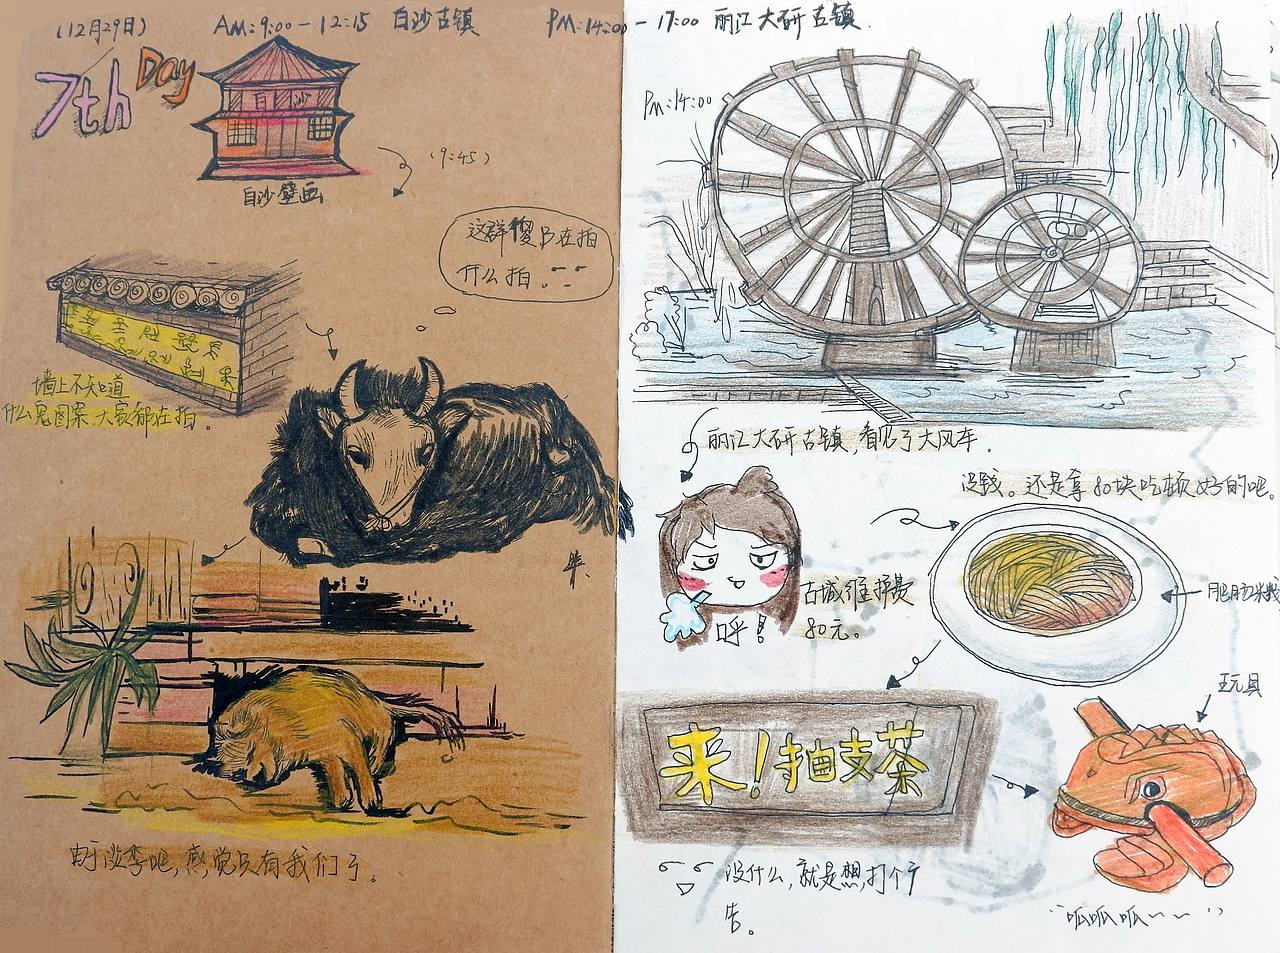 (12月29日)
AM:9:00-12:15 白沙古镇
PM:14:00-17:00 丽江大研古镇.
7th Day
白沙
白沙壁画
(9:45)
这群傻B在拍
什么拍。
墙上不知道
什么鬼图案,大家都在拍。
牛.
由于淡季吧,感觉只有我们了。
PM:14:00
丽江大研古镇,看见了大风车.
没钱。还是拿80块吃顿好的吧。
古城维护费
80元。
呼!
肥肠米线
来!抽支茶
玩具
没什么,就是想打个广
告。
呱呱呱~~